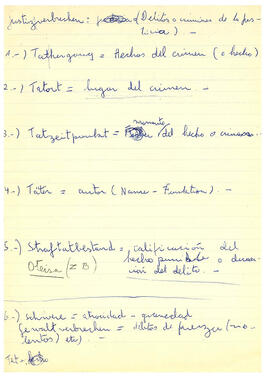 Justizverbrechen: (Delitos o crimenes de la jus-
ticia) -
1.-) Tathergang = Hechos del crimen (o hecho)
2.-) Tatort = lugar del crimen. -
momento
3.-) Tatzeitpunkt = del hecho o crimen -
4.-) Täter = autor (Name - Funktion). -
5.-) Straftatbestand = calificación del
Oteiza (z B) hecho punible o denomi-
nación del delito. -
6.-) schwere = atrocidad - gravedad
(Gewaltverbrechen = delitos de fuerza (vio-
lentos) etc). -
Tat =